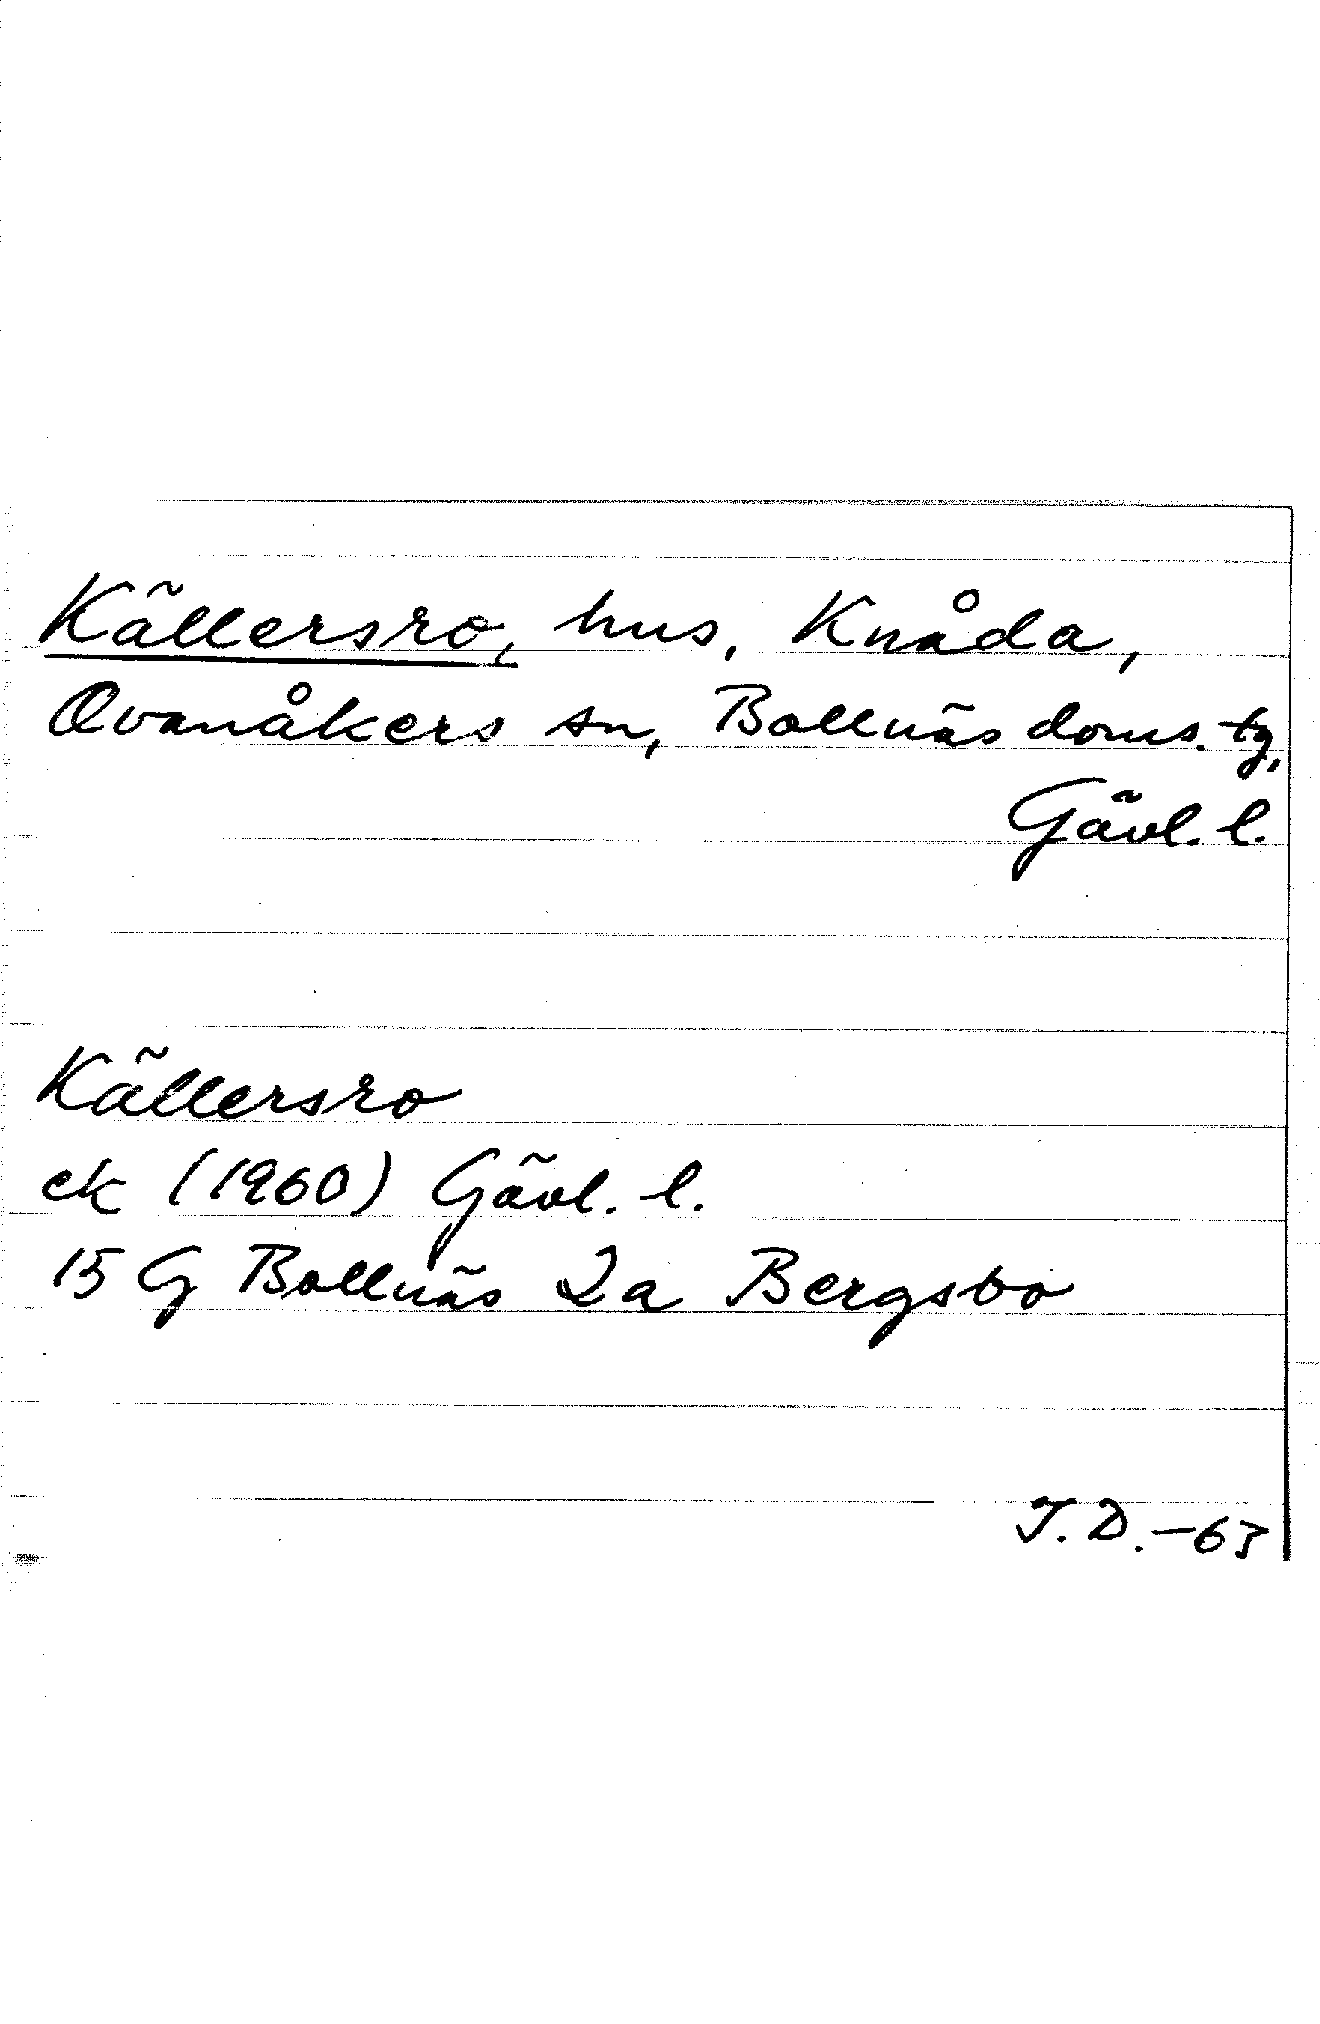 Källersro, hus, Knåda,
Ovanåkers sn, Bollnäs doms. tg,
Gävl. l.
Källersro
ek (1960) Gävl. l.
15 G Bollnäs 2a Bergsbo
T. D. -63